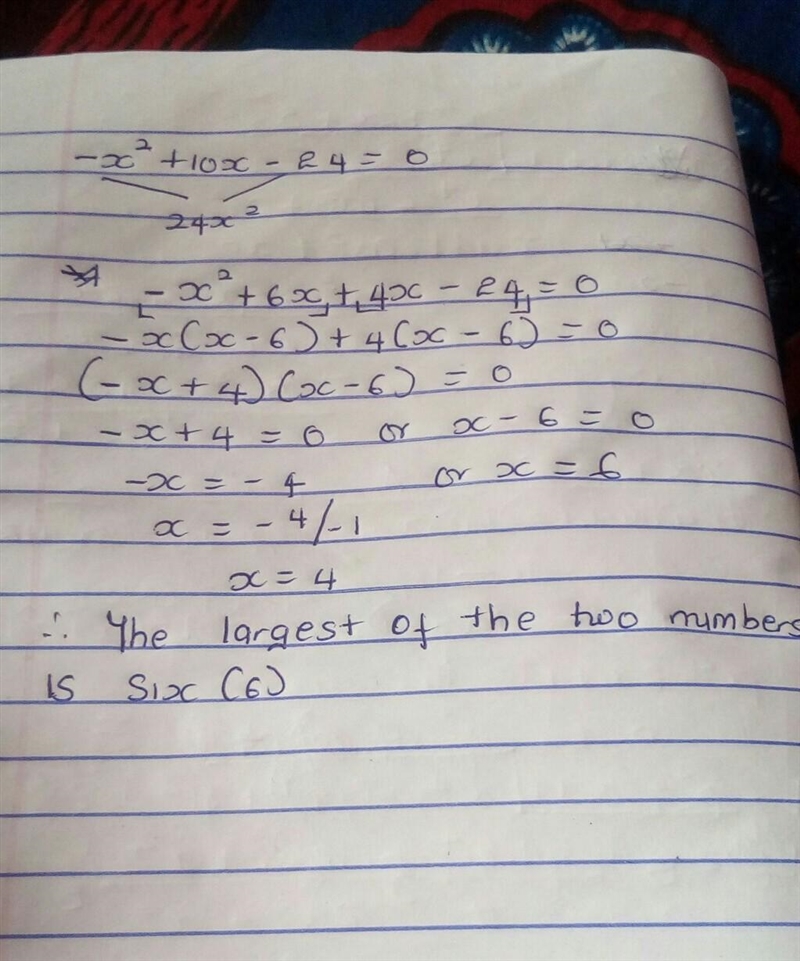 -x² + 10x - 24 = 0
24x²
-x² + 6x + 4x - 24 = 0
-x(x - 6) + 4(x - 6) = 0
(-x + 4)(x - 6) = 0
-x + 4 = 0 or x - 6 = 0
-x = -4 or x = 6
x = -4/-1
x = 4
∴ The largest of the two numbers
is six (6)